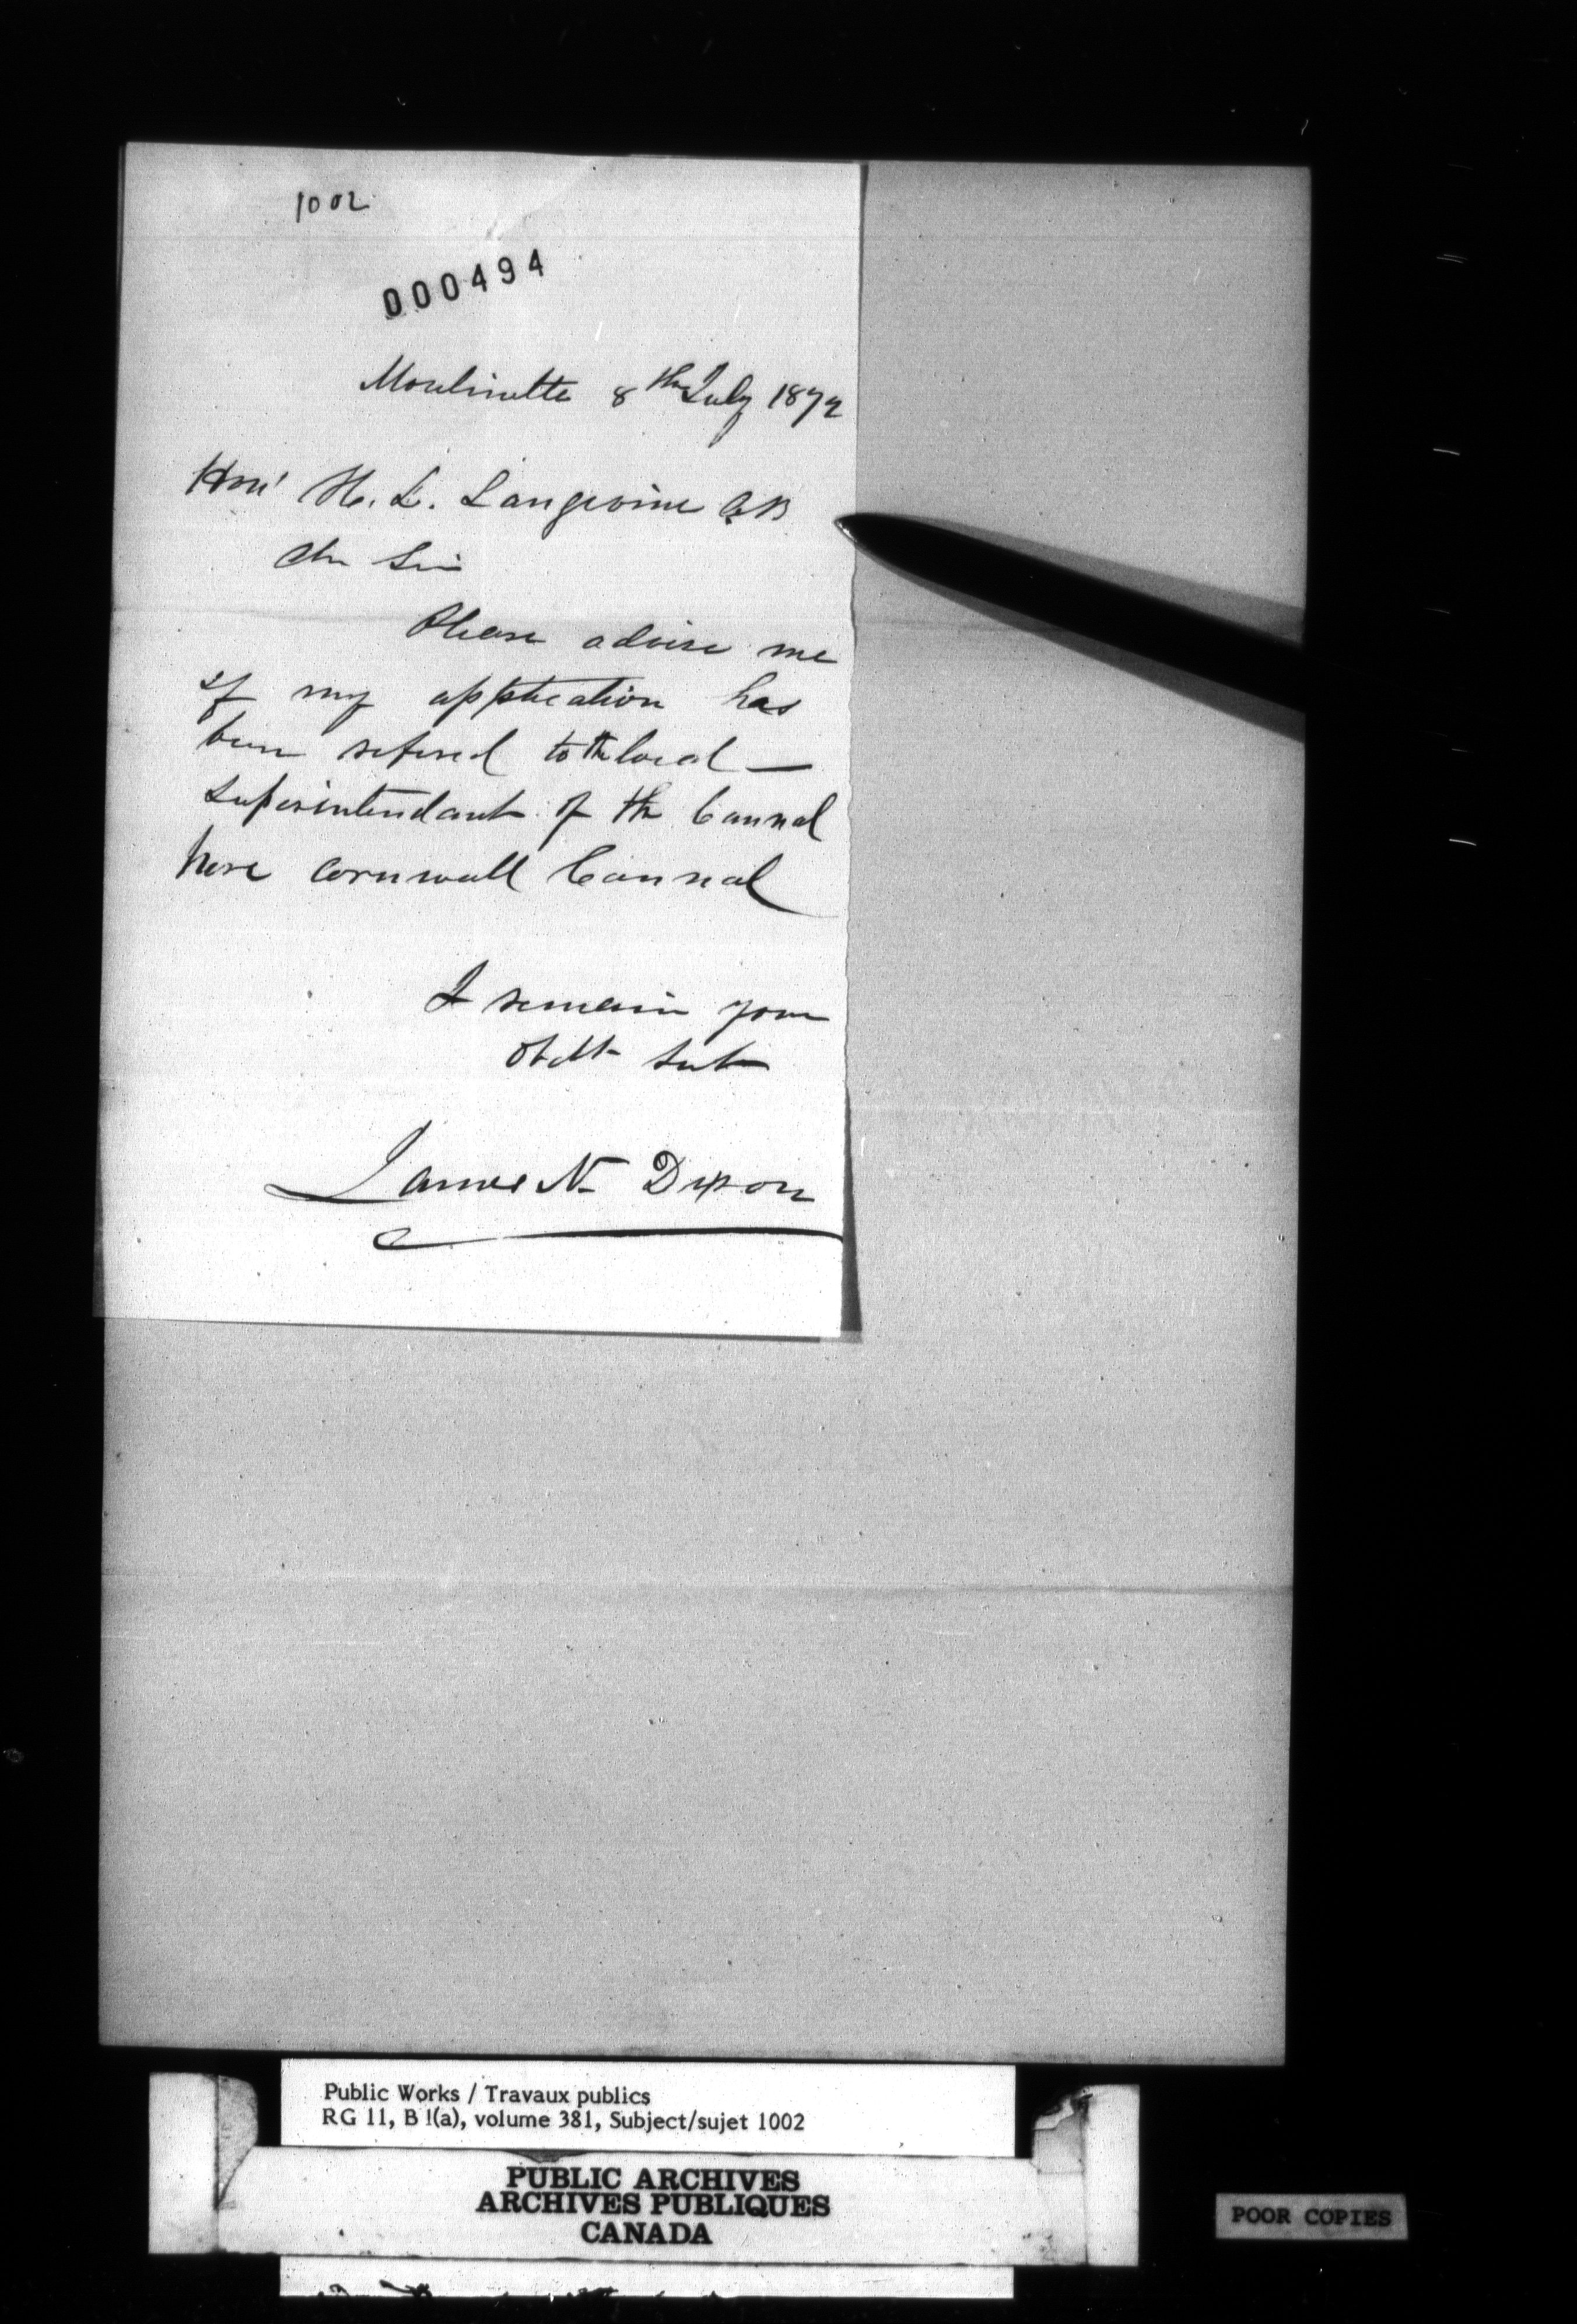 1002
000494
Moulinette 8th July 1872
Hon' H. L. Langevine CB
Sir
Please advise me
if my application has
been refered to the local —
Superintendant of the Cannal
here Cornwall Cannal
I remain your
Obdt Svt
James N. Dixon
Public Works / Travaux publics
RG 11, B 1(a), volume 381, Subject/sujet 1002
PUBLIC ARCHIVES
ARCHIVES PUBLIQUES
CANADA
POOR COPIES